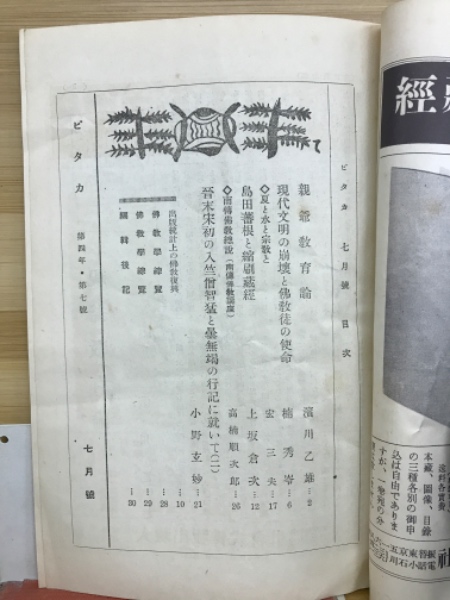 ピタカ 七月號 目次
親爺敎育論 濱川乙雄…2
現代文明の崩壞と佛敎徒の使命 楠秀岑…6
◇夏と水と宗敎と 宏三夫…17
島田蕃根と縮刷藏經 上坂倉次…12
◇南傳佛敎總說(南傳佛敎講座) 高楠順次郞…26
晉末宋初の入竺僧智猛と曇無竭の行記に就いて(二) 小野玄妙…21
出版統計上の佛敎復興…19
佛敎學總覽…28
佛敎學總覽…29
編輯後記…30
ピタカ 第四年・第七號 七月號
經
本藏、圖像、目錄
の三種各別の御申
込は自由でありま
すが、一發宛の分
社